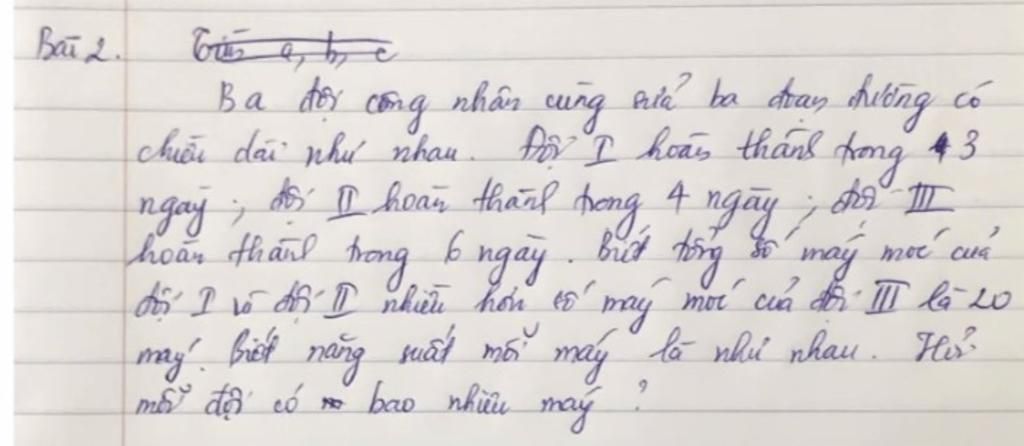 Bài 2. Tìm a, b, c
Ba đội công nhân cùng sửa ba đoạn đường có
chiều dài như nhau. Đội I hoàn thành trong 3
ngày ; đội II hoàn thành trong 4 ngày ; đội III
hoàn thành trong 6 ngày. Biết tổng số máy móc của
đội I và đội II nhiều hơn số máy móc của đội III là 20
máy. Biết năng suất mỗi máy là như nhau. Hỏi
mỗi đội có bao nhiêu máy ?